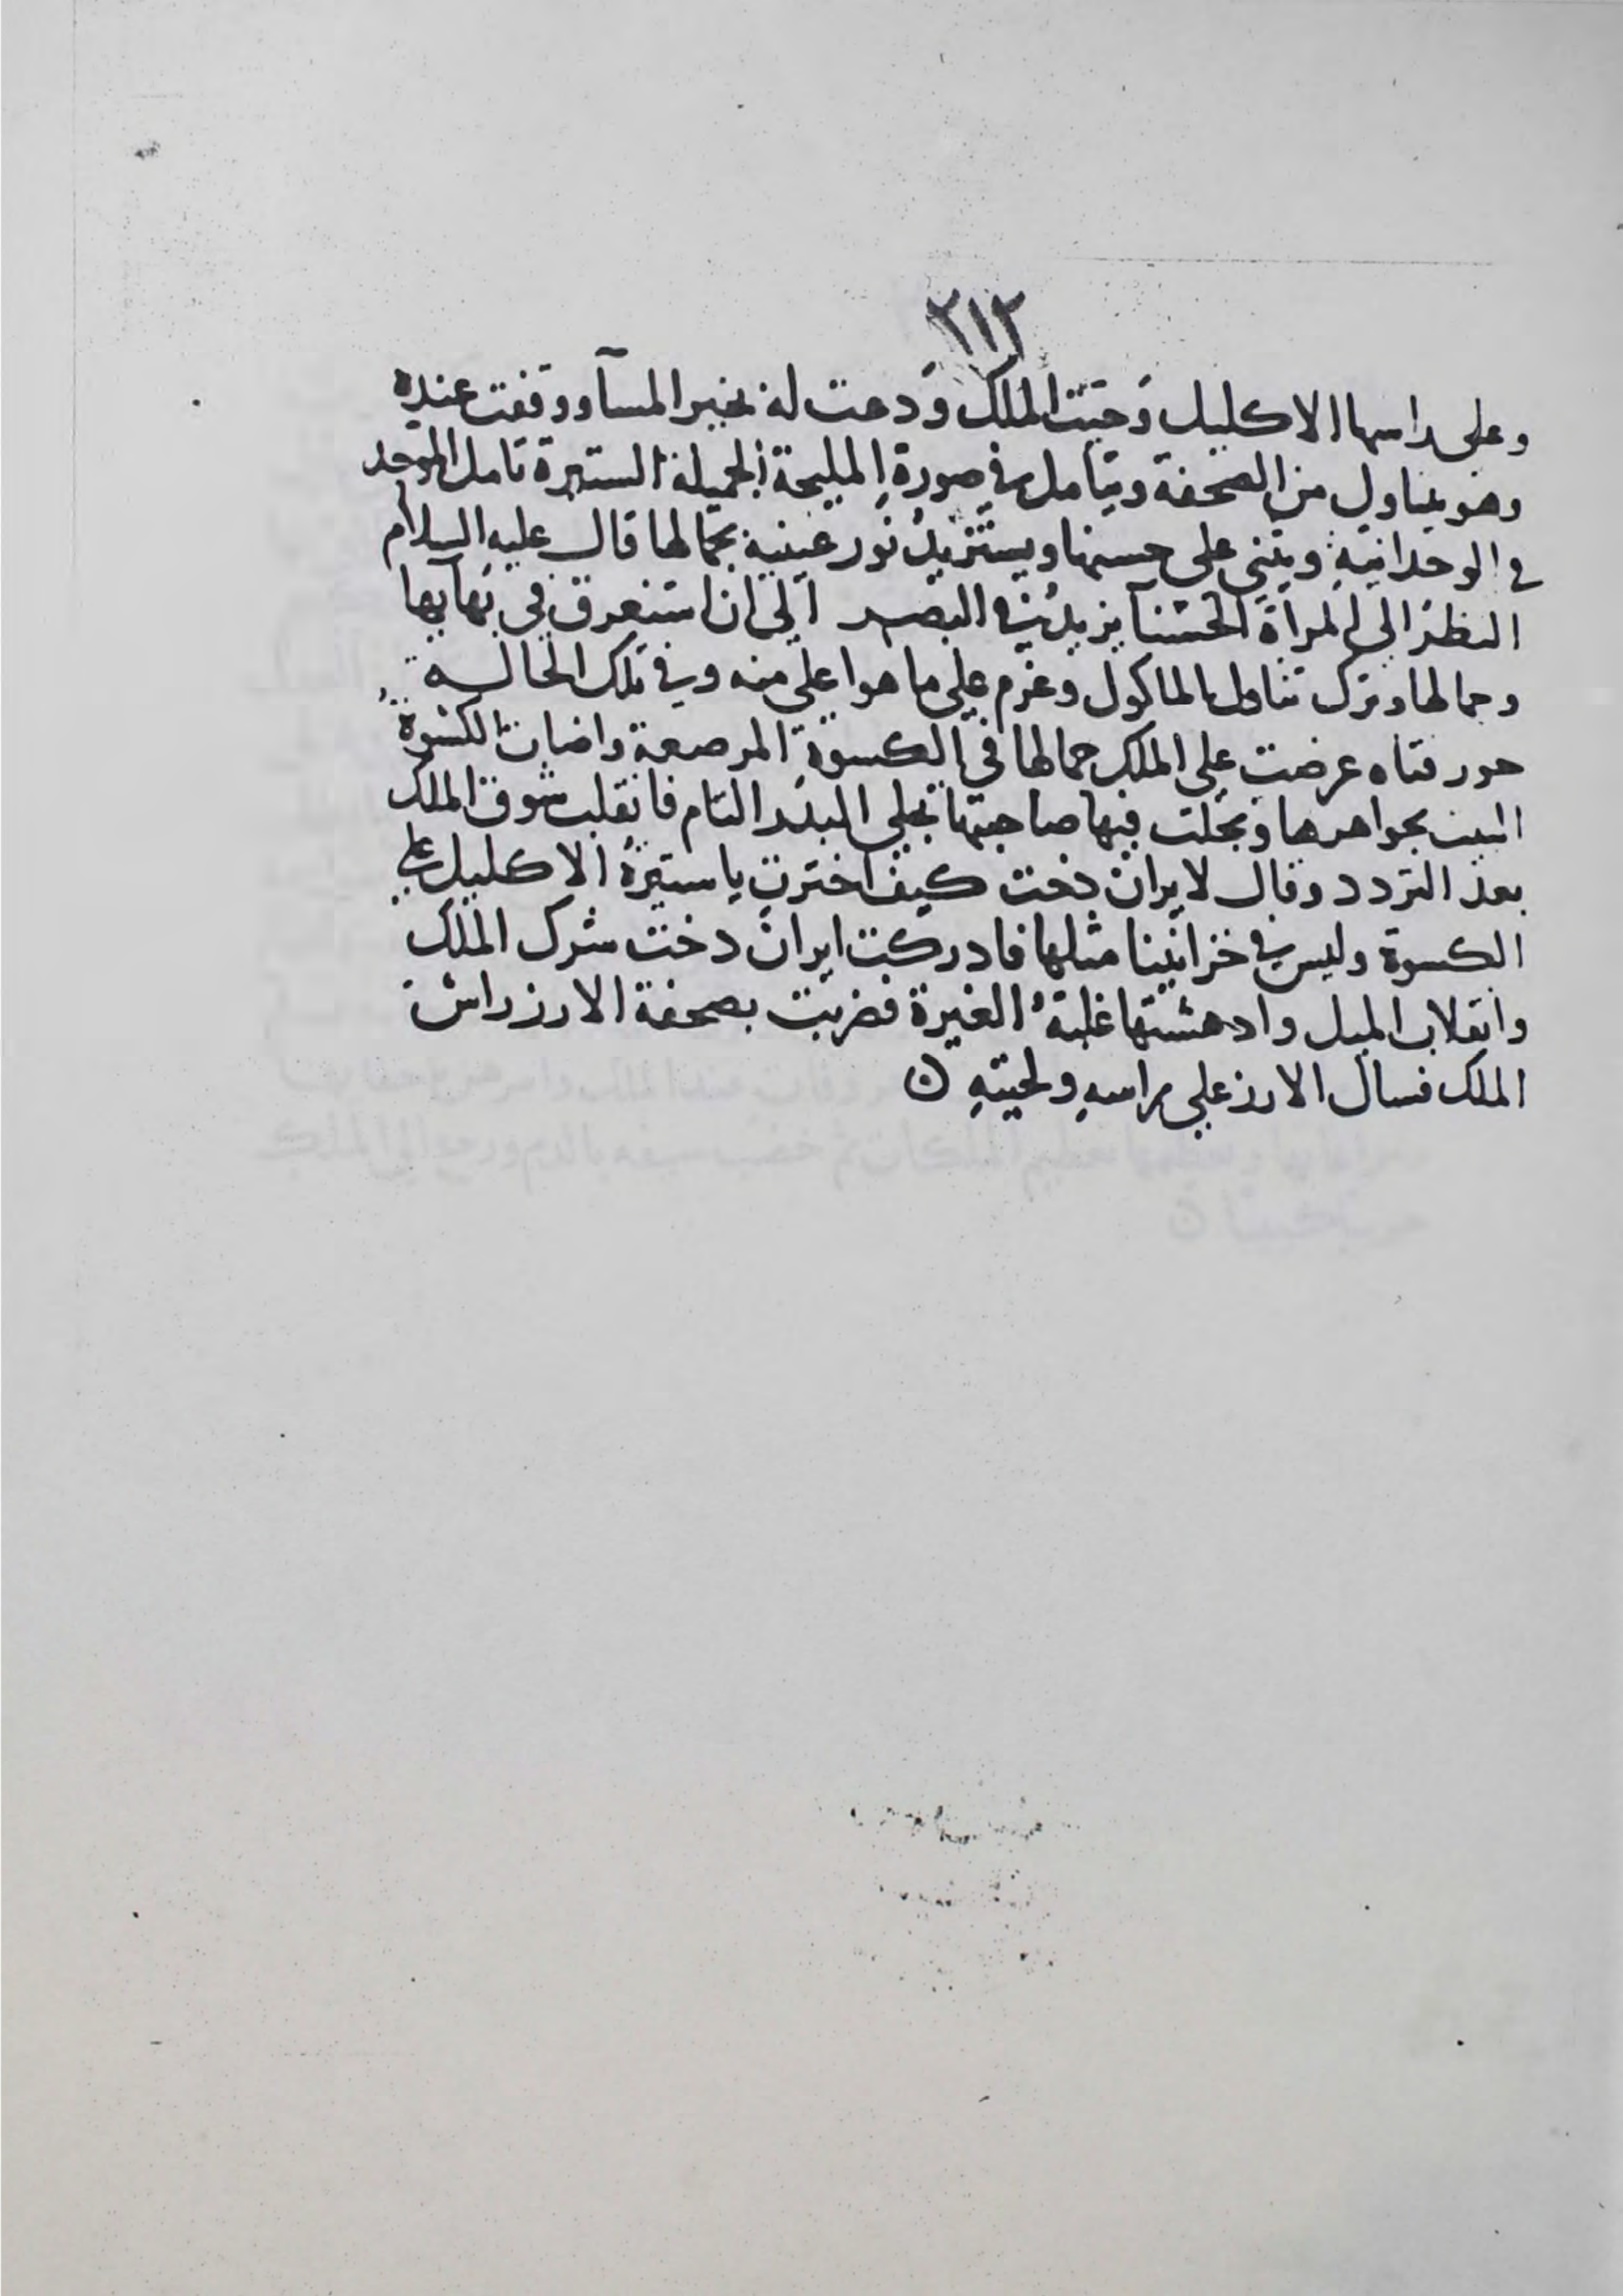 ٢١٢
وعلى راسها الاكليل وحيت الملك ودعت له بخير المسآ ووقفت عنده
وهو يتناول من الصحفة ويتامل في صورة المليحة الجميلة الستيرة تامل الموحد
في الوحدانية ويثني على حسنها ويستزيد نور عينيه بجمالها قال عليه السلام
النظر الى المرأة الحسنآ يزيد في البصر الى ان استغرق في بهايها
وجمالها وترك تناول الماكول وعزم على ما هو اعلى منه وفي تلك الحالة
حور فتاه عرضت على الملك جمالها في الكسوة المرصعة واضات الكسوة
البيت بجواهرها وتجلت فيها صاحبتها تجلي البدر التام فانقلب شوق الملك
بعد التردد وقال لايران دخت كيف اخترت يا ستيرة الاكليل على
الكسوة وليس في خزاينينا مثلها فادركت ايران دخت شرك الملك
وانقلاب الميل وادهشتها غلبة الغيرة فضربت بصحفة الارز راس
الملك فسال الارز على راسه ولحيته ن